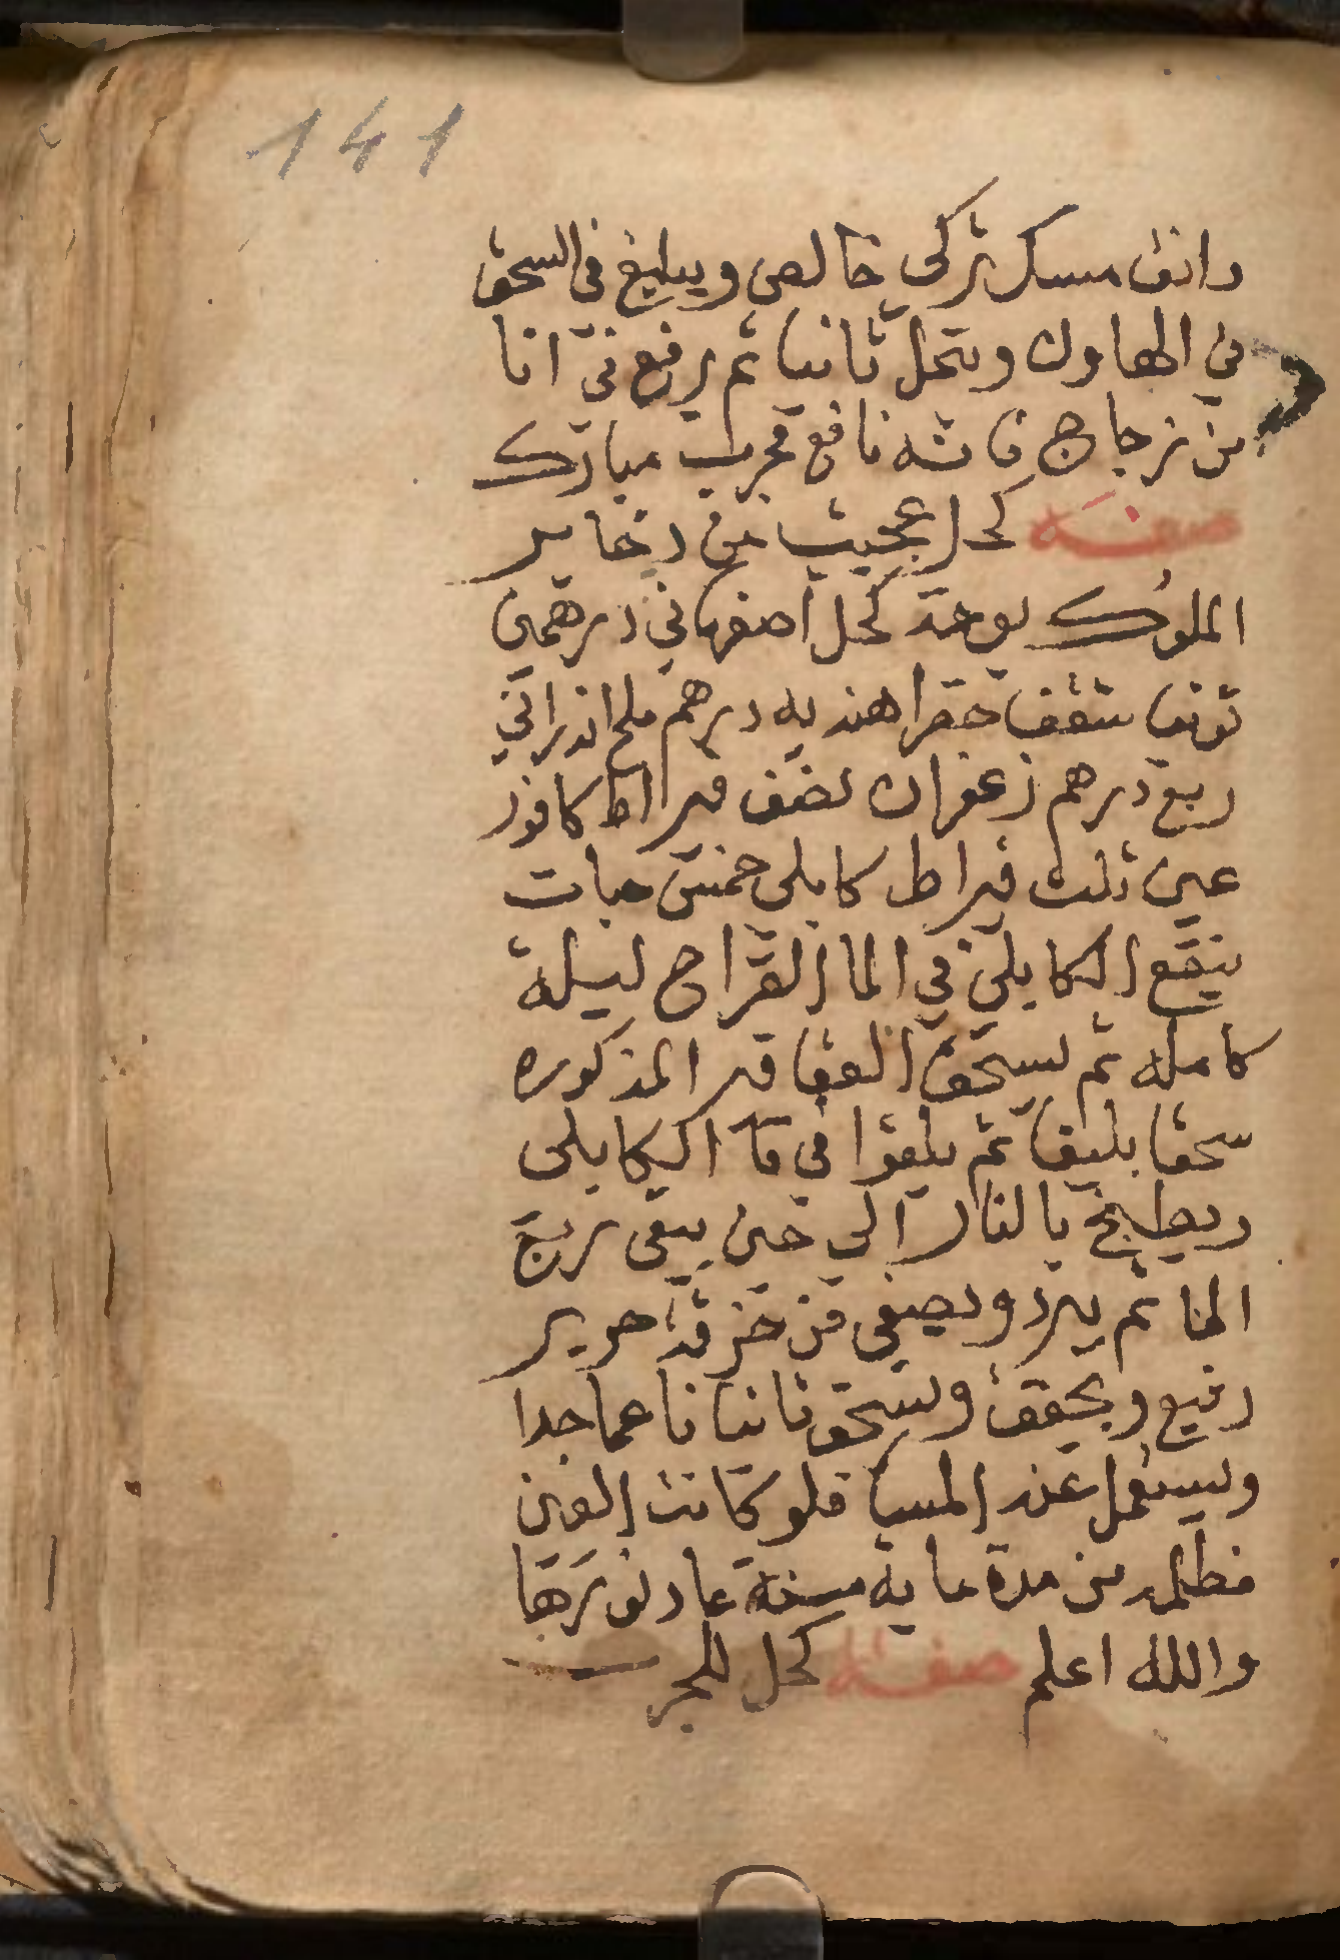 141
دانق مسك تركي خالص ويبليغ في السحق
في الهاون وينخل ثانيا ثم يرفع في انا
من زجاج فانه نافع مجرب مبارك
صفة كحل عجيب من دخاير
الملوك يوخذ كحل اصفهاني درهمين
توتيا شقف خضرا هنديه درهم ملح اندراني
ربع درهم زعفران نصف قيراط كافور
عين ثلث قيراط كابلي خمس حبات
ينقع الكابلي في الما القراح ليلة
كامله ثم يسحق العقاقير المذكوره
سحقا بليغا ثم يلقوا في ما الكابلي
ويطبخ بالنار الي حين يبقى ربع
الما ثم يبرد ويصفى من خرقة حرير
رفيع ويجفف ويسحق ثانيا ناعما جدا
ويستعمل عند المسا فلو كانت العين
مظلمه من مدة ماية سنة عاد نورها
والله اعلم صفة كحل للجرب